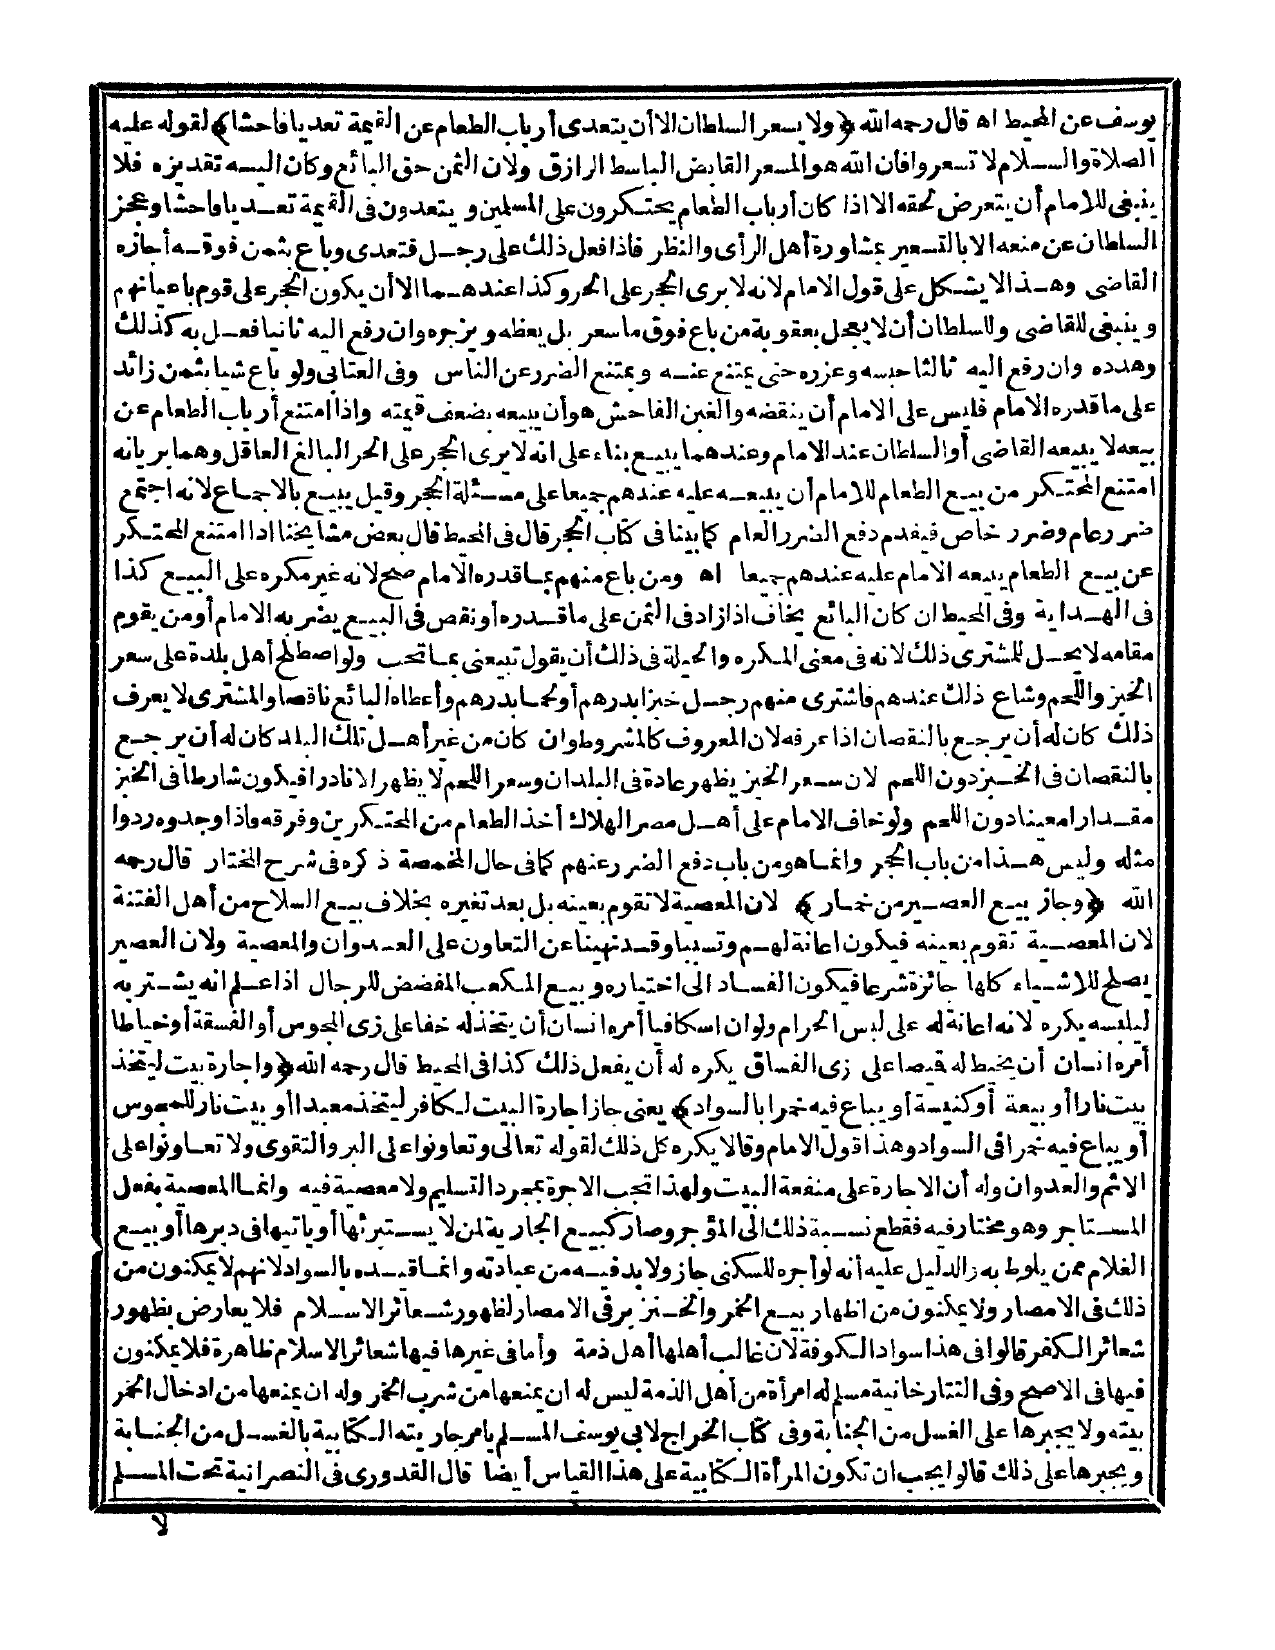 يوسف عن المحيط اه قال رحمه الله ﴿ولا يسعر السلطان الا أن يتعدى أرباب الطعام عن القيمة تعديا فاحشا﴾ لقوله عليه
الصلاة والسلام لا تسعروا فان الله هو المسعر القابض الباسط الرازق ولان الثمن حق البائع وكان اليه تقديره فلا
ينبغي للامام أن يتعرض لحقه الا اذا كان أرباب الطعام يحتكرون على المسلمين ويتعدون في القيمة تعديا فاحشا وعجز
السلطان عن منعه الا بالتسعير بمشاورة أهل الرأى والنظر فاذا فعل ذلك على رجل فتعدى وباع بثمن فوقه أجازه
القاضى وهذا لا يشكل على قول الامام لانه لا يرى الحجر على الحر وكذا عندهما الا أن يكون الحجر على قوم باعيانهم
وينبغى للقاضى وللسلطان أن لا يعجل بعقوبة من باع فوق ما سعر بل يعظه ويزجره وان رفع اليه ثانيا فعل به كذلك
وهدده وان رفع اليه ثالثا حبسه وعزره حتى يمتنع عنه ويمتنع الضرر عن الناس وفى العتابى ولو باع شيا بثمن زائد
على ما قدره الامام فليس على الامام أن ينقضه والغبن الفاحش هو أن يبيعه بضعف قيمته واذا امتنع أرباب الطعام عن
بيعه لا يبيعه القاضى أو السلطان عند الامام وعندهما يبيع بناء على انه لا يرى الحجر على الحر البالغ العاقل وهما يريانه
امتنع المحتكر من بيع الطعام للامام أن يبيعه عليه عندهم جميعا على مسئلة الحجر وقيل يبيع بالاجماع لانه اجتمع
ضرر عام وضرر خاص فيقدم دفع الضرر العام كما بينا فى كتاب الحجر قال فى المحيط قال بعض مشايخنا اذا امتنع المحتكر
عن بيع الطعام يبيعه الامام عليه عندهم جميعا اه ومن باع منهم بما قدره الامام صح لانه غير مكره على البيع كذا
فى الهداية وفى المحيط ان كان البائع يخاف اذا زاد فى الثمن على ما قدره أو نقص فى البيع يضربه الامام أو من يقوم
مقامه لا يحل للمشترى ذلك لانه فى معنى المكره والحيلة فى ذلك أن يقول تبيعنى بما تحب ولو اصطلح أهل بلدة على سعر
الخبز واللحم وشاع ذلك عندهم فاشترى منهم رجل خبزا بدرهم أو لحما بدرهم وأعطاه البائع ناقصا والمشترى لا يعرف
ذلك كان له أن يرجع بالنقصان اذا عرفه لان المعروف كالمشروط وان كان من غير أهل تلك البلد كان له أن يرجع
بالنقصان فى الخبز دون اللحم لان سعر الخبز يظهر عادة فى البلدان وسعر اللحم لا يظهر الا نادرا فيكون شارطا فى الخبز
مقدارا معينا دون اللحم ولو خاف الامام على أهل مصر الهلاك أخذ الطعام من المحتكرين وفرقه فاذا وجدوه ردوا
مثله وليس هذا من باب الحجر وانما هو من باب دفع الضرر عنهم كما فى حال المخمصة ذكره فى شرح المختار قال رحمه
الله ﴿وجاز بيع العصير من خمار﴾ لان المعصية لا تقوم بعينه بل بعد تغيره بخلاف بيع السلاح من أهل الفتنة
لان المعصية تقوم بعينه فيكون اعانة لهم وتسببا وقد نهينا عن التعاون على العدوان والمعصية ولان العصير
يصلح للاشياء كلها جائزة شرعا فيكون الفساد الى اختياره وبيع المكعب المفضض للرجال اذا علم انه يشتريه
ليلبسه يكره لانه اعانة له على لبس الحرام ولو ان اسكافيا أمره انسان أن يتخذ له خفا على زى المجوس أو الفسقة أو خياطا
أمره انسان أن يخيط له قميصا على زى الفساق يكره له أن يفعل ذلك كذا فى المحيط قال رحمه الله ﴿واجارة بيت ليتخذ
بيت نار أو بيعة أو كنيسة أو يباع فيه خمر بالسواد﴾ يعنى جاز اجارة البيت لكافر ليتخذ معبدا أو بيت نار للمجوس
أو يباع فيه خمر فى السواد وهذا قول الامام وقالا يكره كل ذلك لقوله تعالى وتعاونوا على البر والتقوى ولا تعاونوا على
الاثم والعدوان وله أن الاجارة على منفعة البيت ولهذا تجب الاجرة بمجرد التسليم ولا معصية فيه وانما المعصية بفعل
المستاجر وهو مختار فيه فقطع نسبة ذلك الى المؤجر وصار كبيع الجارية لمن لا يستبرئها أو ياتيها فى دبرها أو بيع
الغلام ممن يلوط به والدليل عليه أنه لو أجره للسكنى جاز ولا بد فيه من عبادته وانما قيده بالسواد لانهم لا يمكنون من
ذلك فى الامصار ولا يمكنون من اظهار بيع الخمر والخنزير فى الامصار لظهور شعائر الاسلام فلا يعارض بظهور
شعائر الكفر قالوا فى هذا سواد الكوفة لان غالب أهلها أهل ذمة وأما فى غيرها فيها شعائر الاسلام ظاهرة فلا يمكنون
فيها فى الاصح وفى التتارخانية مسلم له امرأة من أهل الذمة ليس له ان يمنعها من شرب الخمر وله ان يمنعها من ادخال الخمر
بيته ولا يجبرها على الغسل من الجنابة وفى كتاب الخراج لابى يوسف المسلم يامر جاريته الكتابية بالغسل من الجنابة
ويجبرها على ذلك قالوا يجب ان تكون المرأة الكتابية على هذا القياس أيضا قال القدورى فى النصرانية تحت المسلم
لا